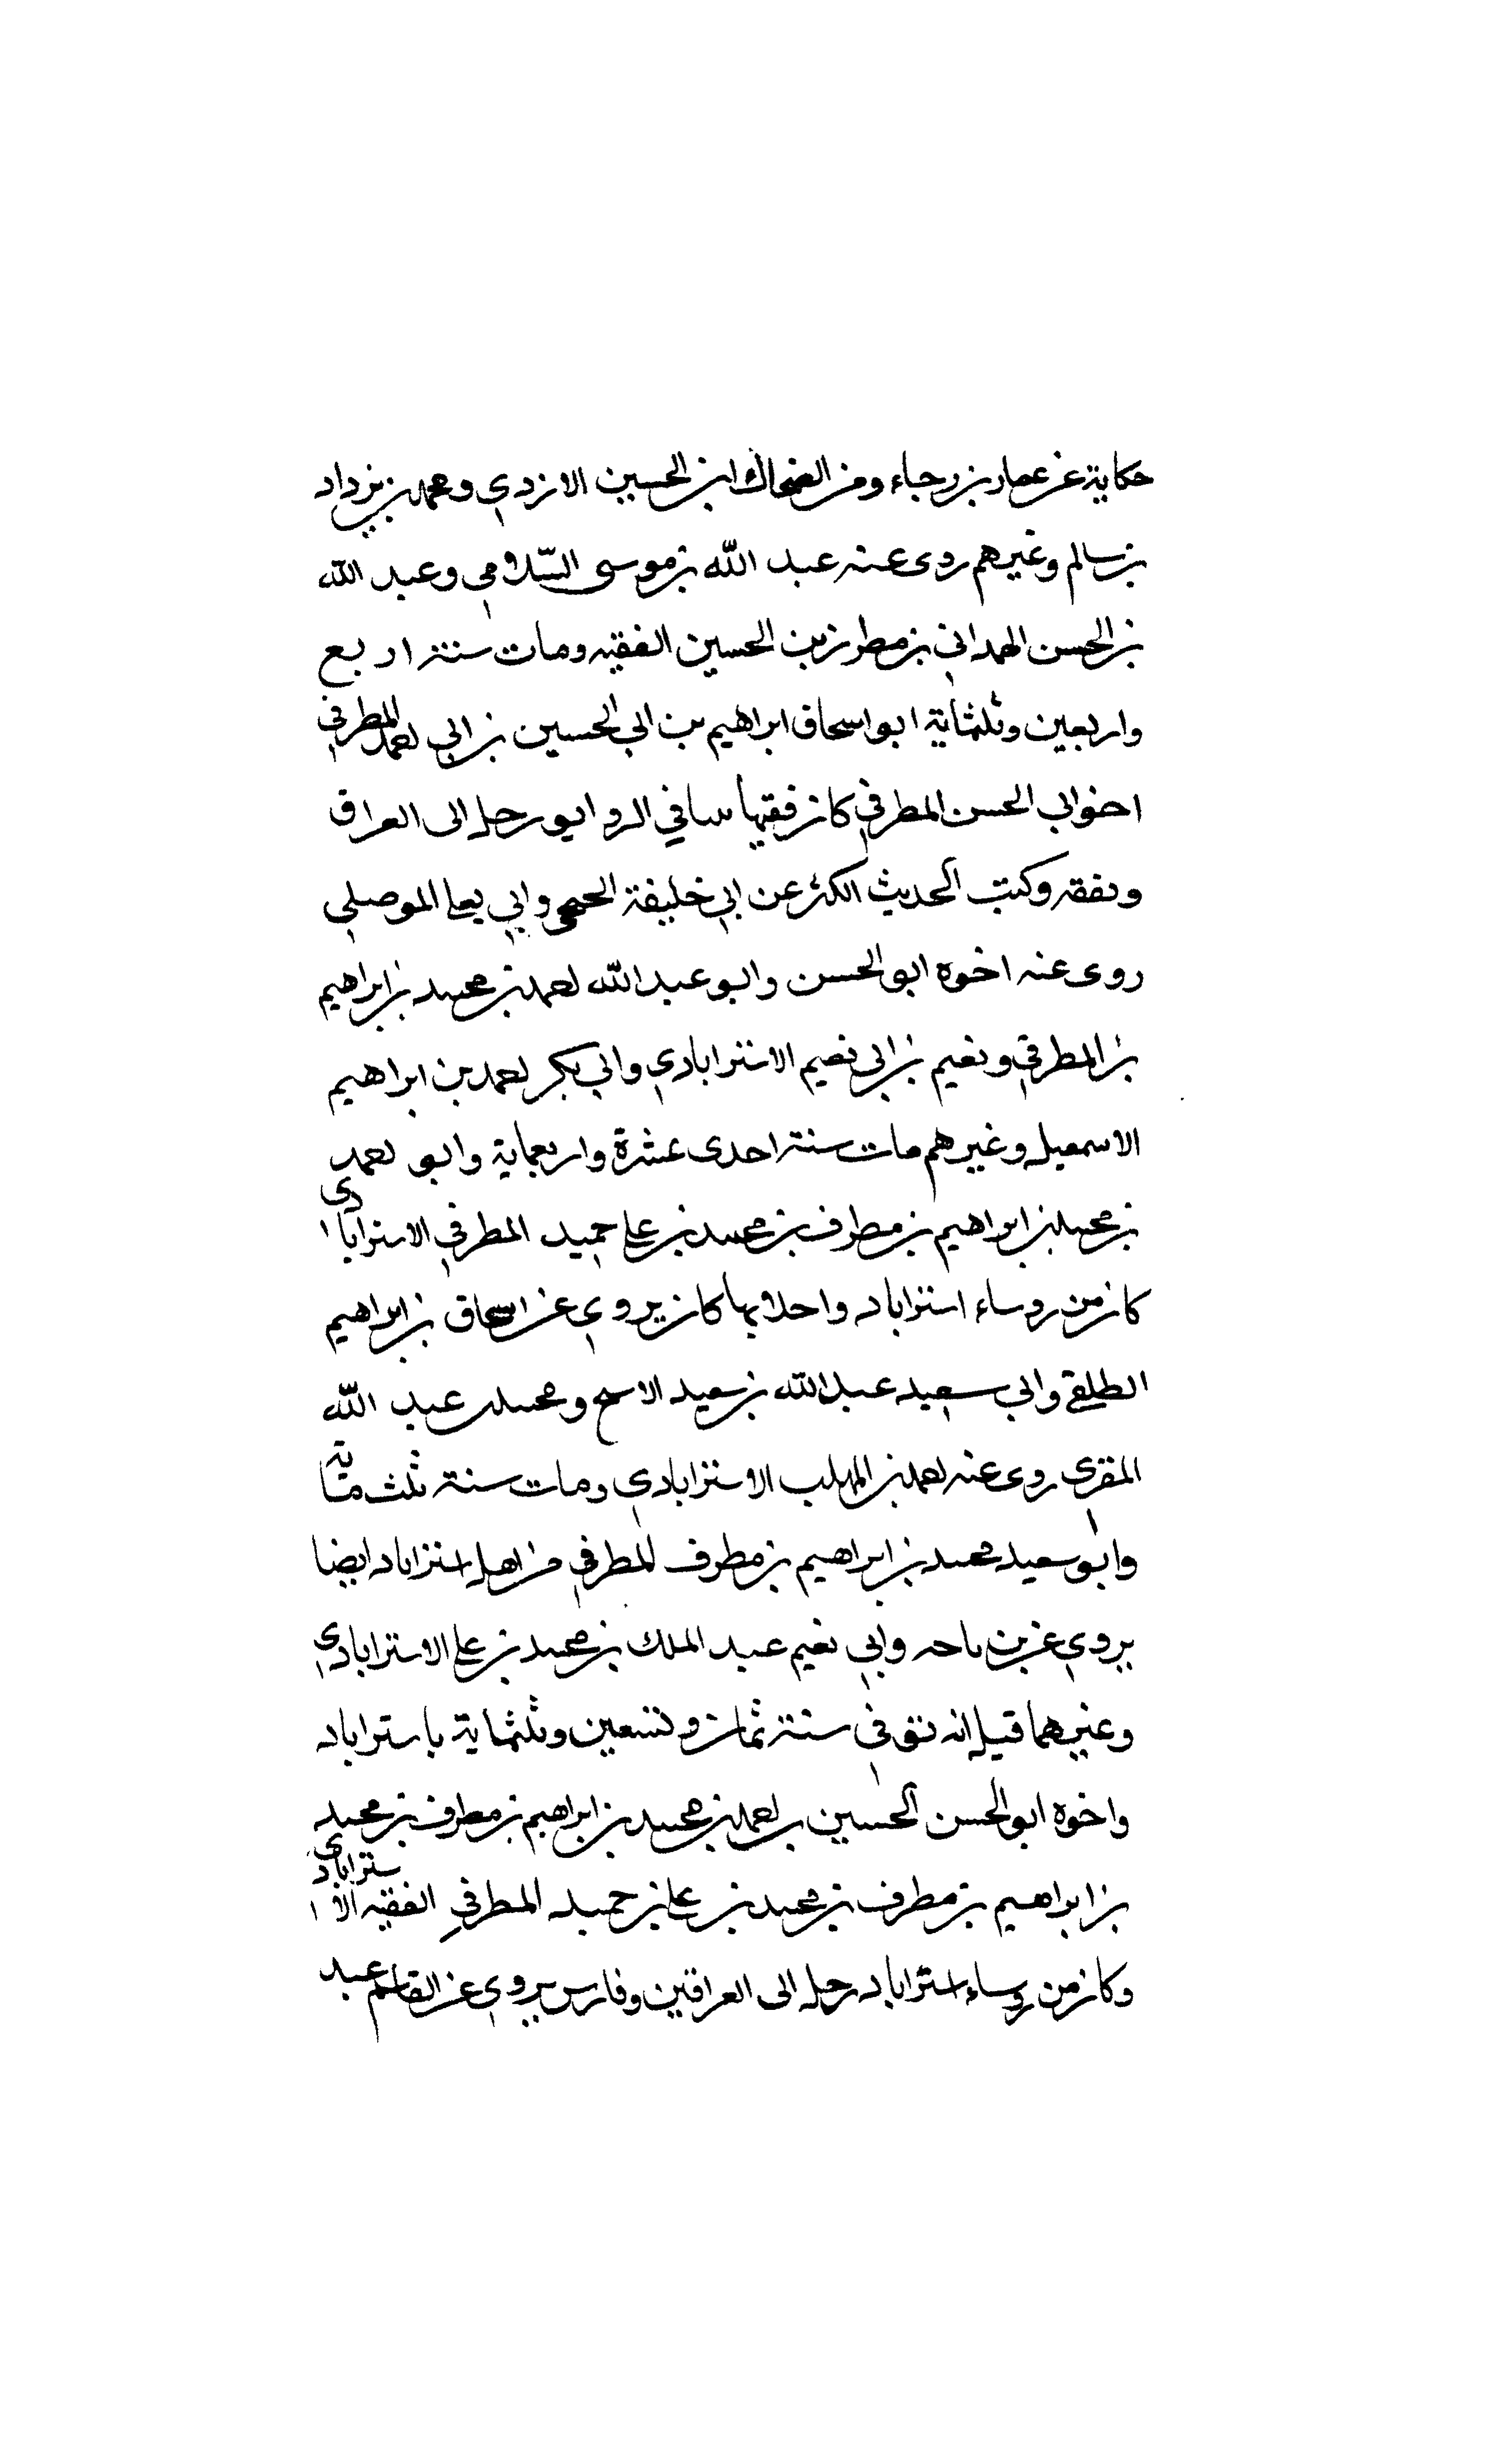 حكاية عن عمار بن رجاء ومن الضحاك ابن الحسين الازدي ومحمد بن يزداد
بن سالم وغيرهم روى عنه عبد الله بن موسى السّلامي وعبد الله
بن الحسن الهمداني بن مطر بن الحسين الفقيه ومات سنة اربع
واربعين وثلثماية ابو اسحاق ابراهيم بن ابي الحسين بن ابي احمد المطرفي
اخو ابي الحسن المطرفي كان فقيها في الرد ابو رحل الى العراق
وتفقه وكتب الحديث الكثر عن ابي خليفة الجمحى وابي يعلى الموصلي
روى عنه اخوه ابو الحسن وابو عبد الله احمد بن محمد بن ابراهيم
بن المطرفي ونعيم بن ابي نعيم الاستراباذي وابي بكر احمد بن ابراهيم
الاسمعيل وغيرهم مات سنة احدى عشرة واربعماية وابو احمد
بن محمد بن ابراهيم بن مطرف بن محمد بن علي حميد المطرفي الاسترابادى
كان من روساء استراباد واجلابها كان يروي عن اسحاق بن ابراهيم
الطلقي وابي سعيد عبد الله بن سعيد الاشج ومحمد بن عبد الله
المقرى روى عنه احمد بن المهلب الاسترابادي ومات سنة ثلث ماية
وابو سعيد محمد بن ابراهيم بن مطرف المطرفي من اهل استراباد ايضا
يروي عن بن ماجه وابي نعيم عبد الملك بن محمد بن علي الاسترابادي
وغيرهما قيل انه توفي سنة ثمان وتسعين وثلثماية باستراباد
واخوه ابو الحسن الحسين بن احمد بن محمد بن ابراهيم بن مطرف بن محمد
بن ابراهيم بن مطرف بن محمد بن علي بن حميد المطرفي الفقيه الاسترابادي
وكان من روساء استراباد رحل الى العراقين وفارس يروي عن القاسم عبد